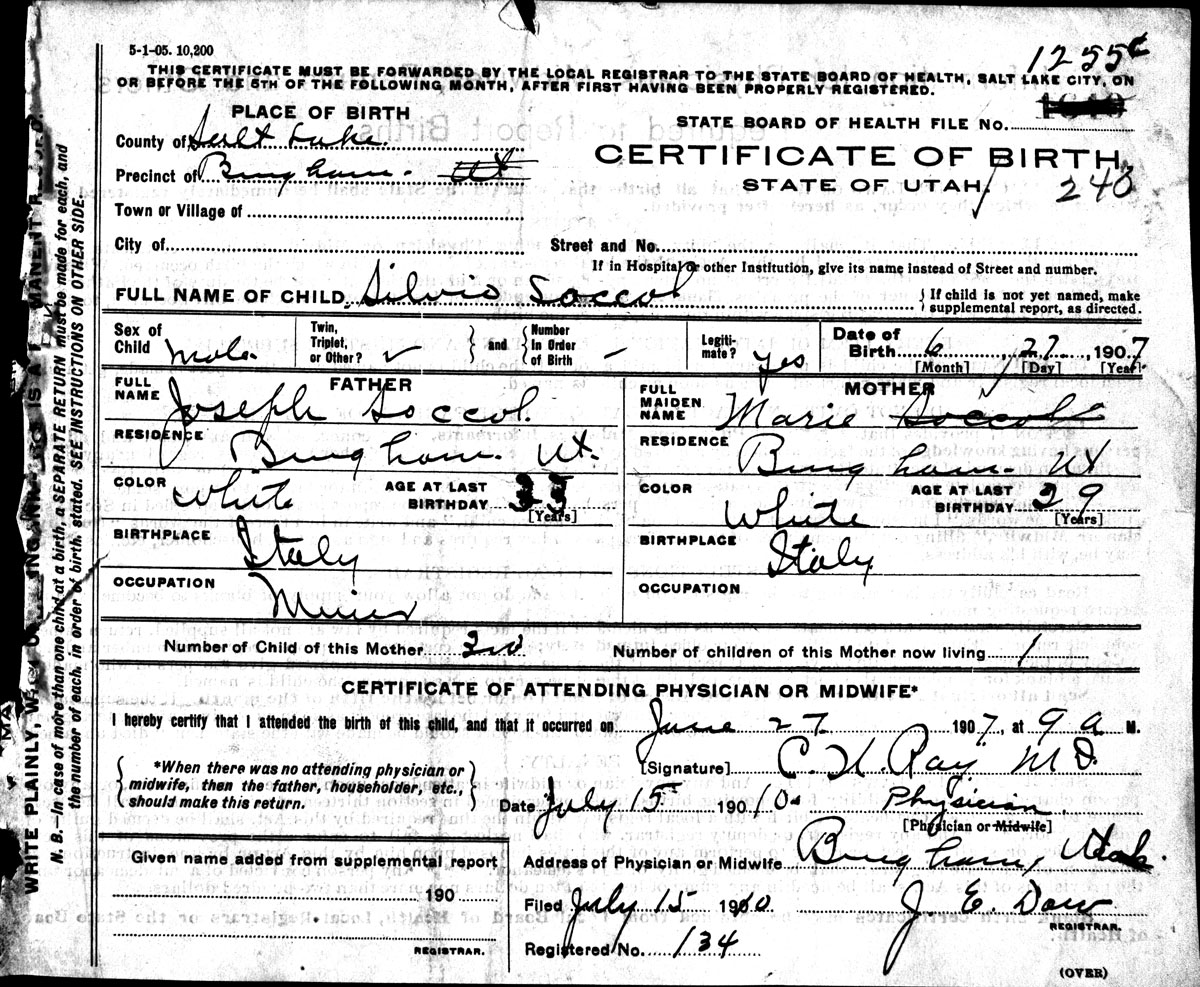 5-1-05. 10,200
1255
THIS CERTIFICATE MUST BE FORWARDED BY THE LOCAL REGISTRAR TO THE STATE BOARD OF HEALTH, SALT LAKE CITY, ON
OR BEFORE THE 5TH OF THE FOLLOWING MONTH, AFTER FIRST HAVING BEEN PROPERLY REGISTERED.
PLACE OF BIRTH
STATE BOARD OF HEALTH FILE No.
County of Salt Lake.
CERTIFICATE OF BIRTH
Precinct of Bingham. Ut
STATE OF UTAH.
248
Town or Village of
City of
Street and No.
If in Hospital or other Institution, give its name instead of Street and number.
FULL NAME OF CHILD Silvio Soccol
If child is not yet named, make supplemental report, as directed.
Sex of Child Male.
Twin, Triplet, or Other?
and Number In Order of Birth –
Legitimate? yes
Date of Birth 6, 27, 1907
[Month] [Day] [Year]
FATHER
FULL NAME Joseph Soccol.
RESIDENCE Bingham. Ut.
COLOR White
AGE AT LAST BIRTHDAY
[Years]
BIRTHPLACE Italy
OCCUPATION Miner
MOTHER
FULL MAIDEN NAME Marie Soccol
RESIDENCE Bingham. Ut
COLOR White
AGE AT LAST BIRTHDAY 29
[Years]
BIRTHPLACE Italy
OCCUPATION
Number of Child of this Mother
Number of children of this Mother now living 1
CERTIFICATE OF ATTENDING PHYSICIAN OR MIDWIFE*
I hereby certify that I attended the birth of this child, and that it occurred on June 27 1907, at 9 a M.
*When there was no attending physician or
midwife, then the father, householder, etc.,
should make this return.
[Signature] C. H. Ray M D.
Date July 15 190 10. Physician
[Physician or Midwife]
Given name added from supplemental report
190
REGISTRAR.
Address of Physician or Midwife Bingham, Utah.
Filed July 15 1910 J. E. Dow
REGISTRAR.
Registered No. 134
(OVER)
WRITE PLAINLY, IS A MANENT
N. B.—In case of more than one child at a birth, a SEPARATE RETURN must be made for each, and
the number of each, in order of birth, stated. SEE INSTRUCTIONS ON OTHER SIDE.